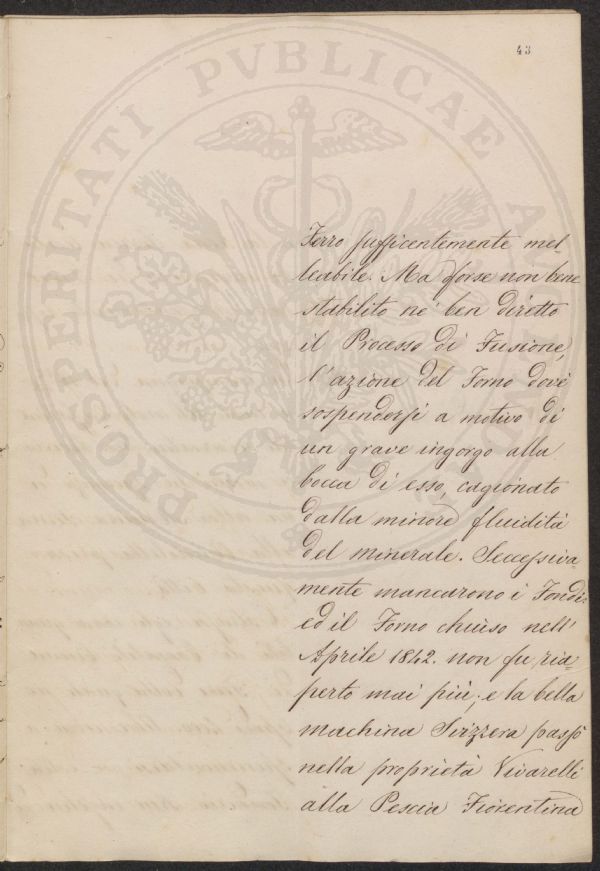 43
PROSPERITATI PVBLICAE AVGENDAE
Ferro sufficentemente mel-
leabile. Ma forse non bene
stabilito ne' ben diretto
il Processo di Fusione,
l'azione del Forno dové
sospendersi a motivo di
un grave ingorgo alla
bocca di esso, cagionato
dalla minore fluidità
del minerale. Seccessiva-
mente mancarono i Fondi
ed il Forno chiuso nell'
Aprile 1842. non fu ria-
perto mai più; e la bella
machina Svizzera passò
nella proprietà Vivarelli
alla Pescia Fiorentina